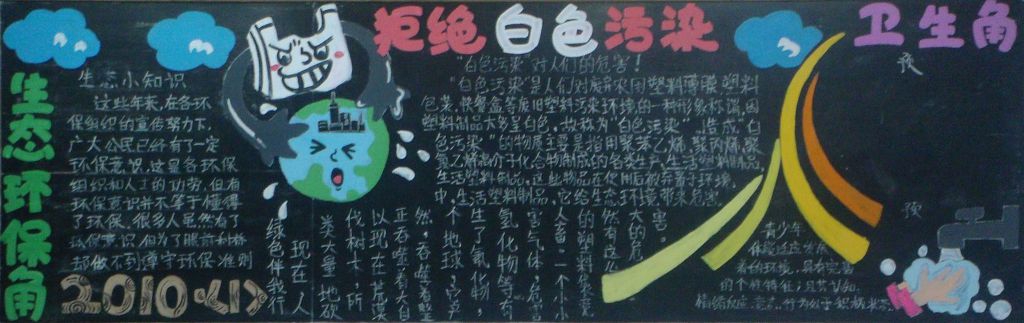 生态环保角
生态小知识
这些年来,在各环
保组织的宣传努力下,
广大公民已经有了一定
环保意识,这是各环保
组织和人士的功劳,但有
环保意识并不等于懂得
了环保,很多人虽然有了
环保意识,但为了眼前利益
却做不到遵守环保准则
2010.
拒绝白色污染
"白色污染"对人们的危害!
"白色污染"是人们对废弃农用塑料薄膜、塑料
包装、快餐盒等废旧塑料污染环境的一种形象称谓,因
塑料制品大多呈白色,故称为"白色污染"。造成"白
色污染"的物质主要是指用聚苯乙烯、聚丙烯、聚
氯乙烯高分子化合物制成的各类生产、生活塑料制品,
生活塑料制品,这些物品在使用后被弃置于环境
中,生活塑料制品,它给生态环境带来危害。
绿色伴我行
现在,人
类大量地砍
伐树木,所
以现在荒漠
正吞噬着大自
然,吞噬着整
个地球,它产
生了氧化物,
氢化物等有
害气体,危害
人畜,一个小小
的塑料袋竟
然有这么
大的危
害。
卫生角
预
预
青少年